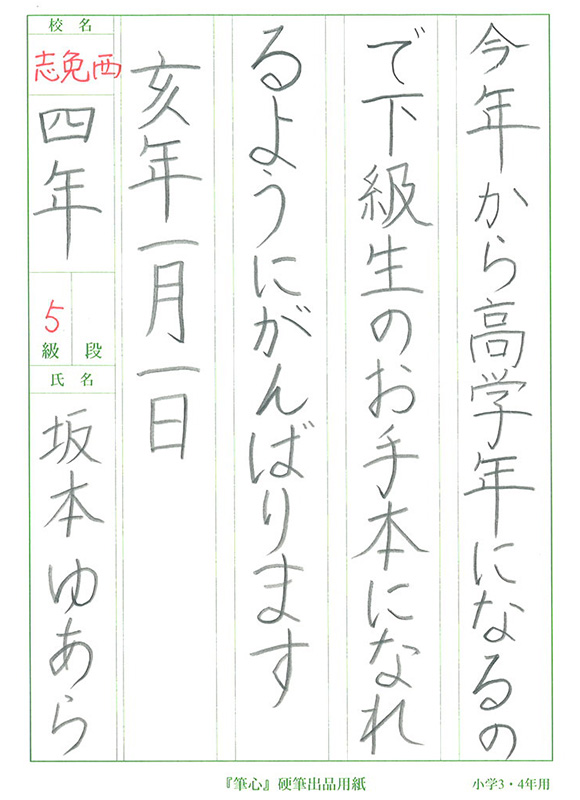 今年から高学年になるの
で下級生のお手本になれ
るようにがんばります
亥年一月一日
校名
志免西
四年
5
級 段
氏名
坂本ゆあら
『筆心』硬筆出品用紙
小学3・4年用